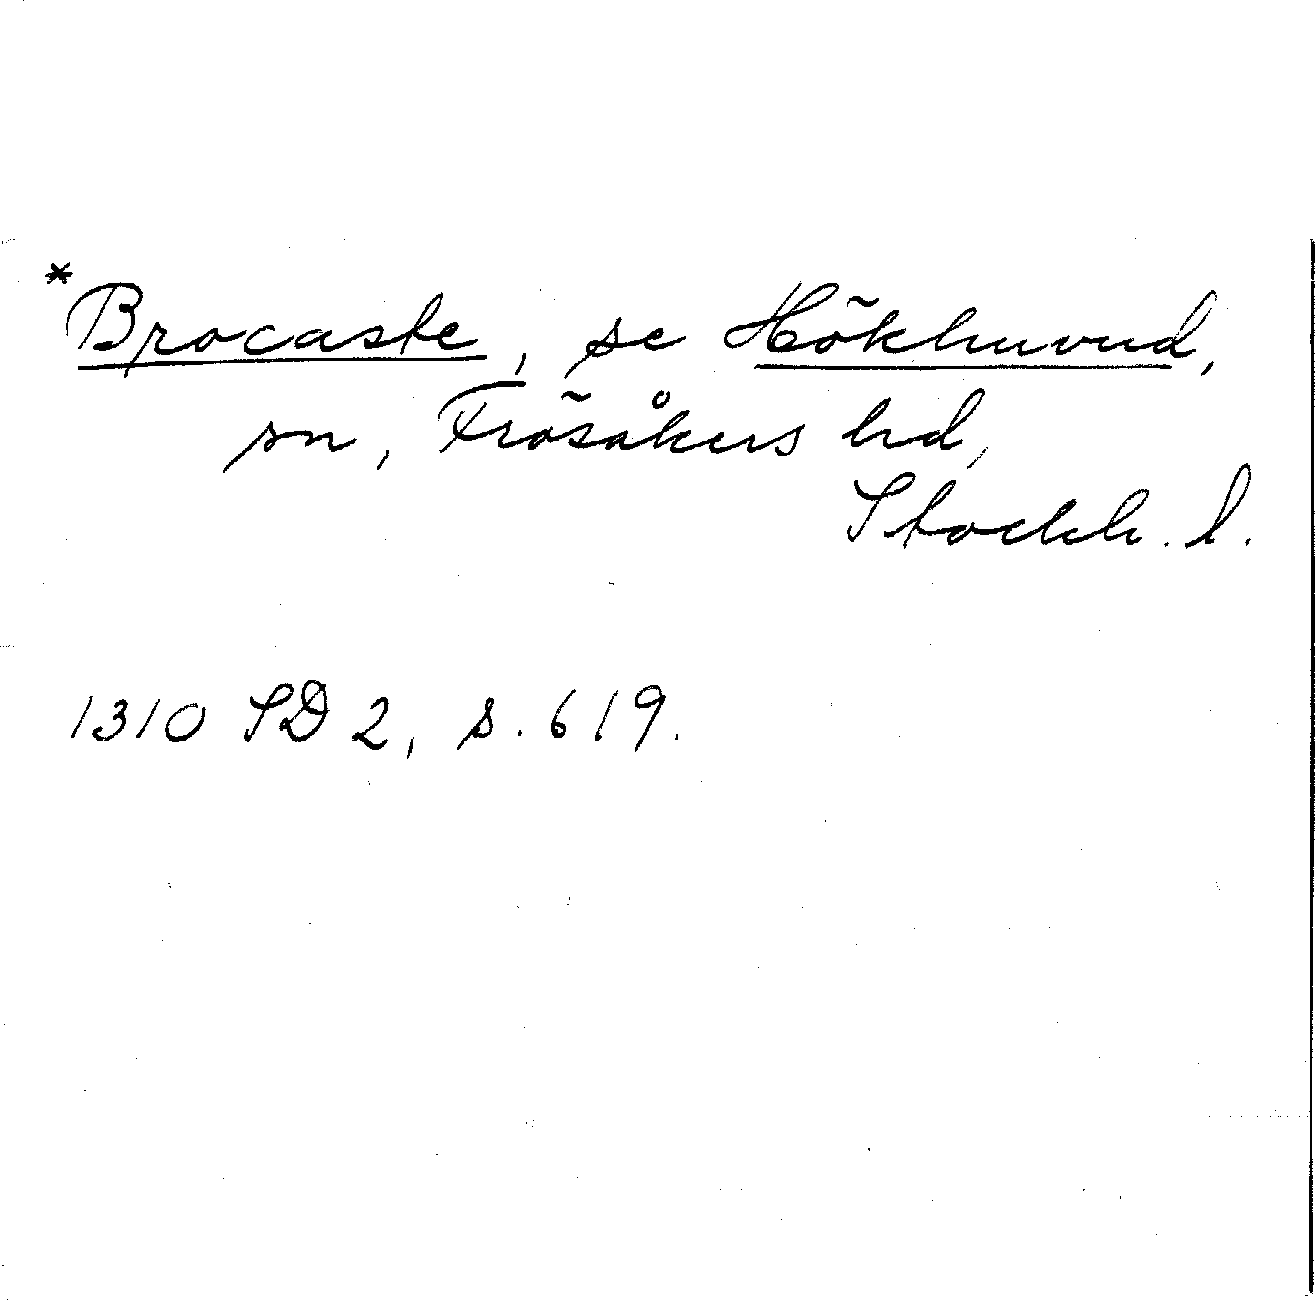 *Brocaste, se Hökhuvud,
sn, Frösåkers hd,
Stockh. l.
1310 SD 2, s. 619.